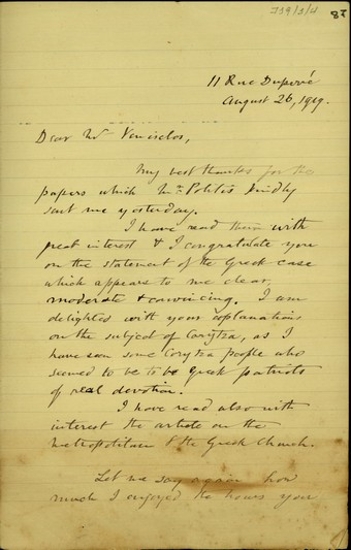 139/3/4
87
11 Rue Duperré
August 26, 1919.
Dear Mr Veniselos,
My best thanks for the
papers which Mr Politis kindly
sent me yesterday.
I have read them with
great interest & I congratulate you
on the statement of the Greek case
which appears to me clear,
moderate & convincing. I am
delighted with your explanations
on the subject of Corytza, as I
have seen some Corytza people who
seemed to be to be Greek patriots
of real devotion.
I have read also with
interest the article on the
metropolitan & the Greek Church.
Let me say again how
much I enjoyed the hours you